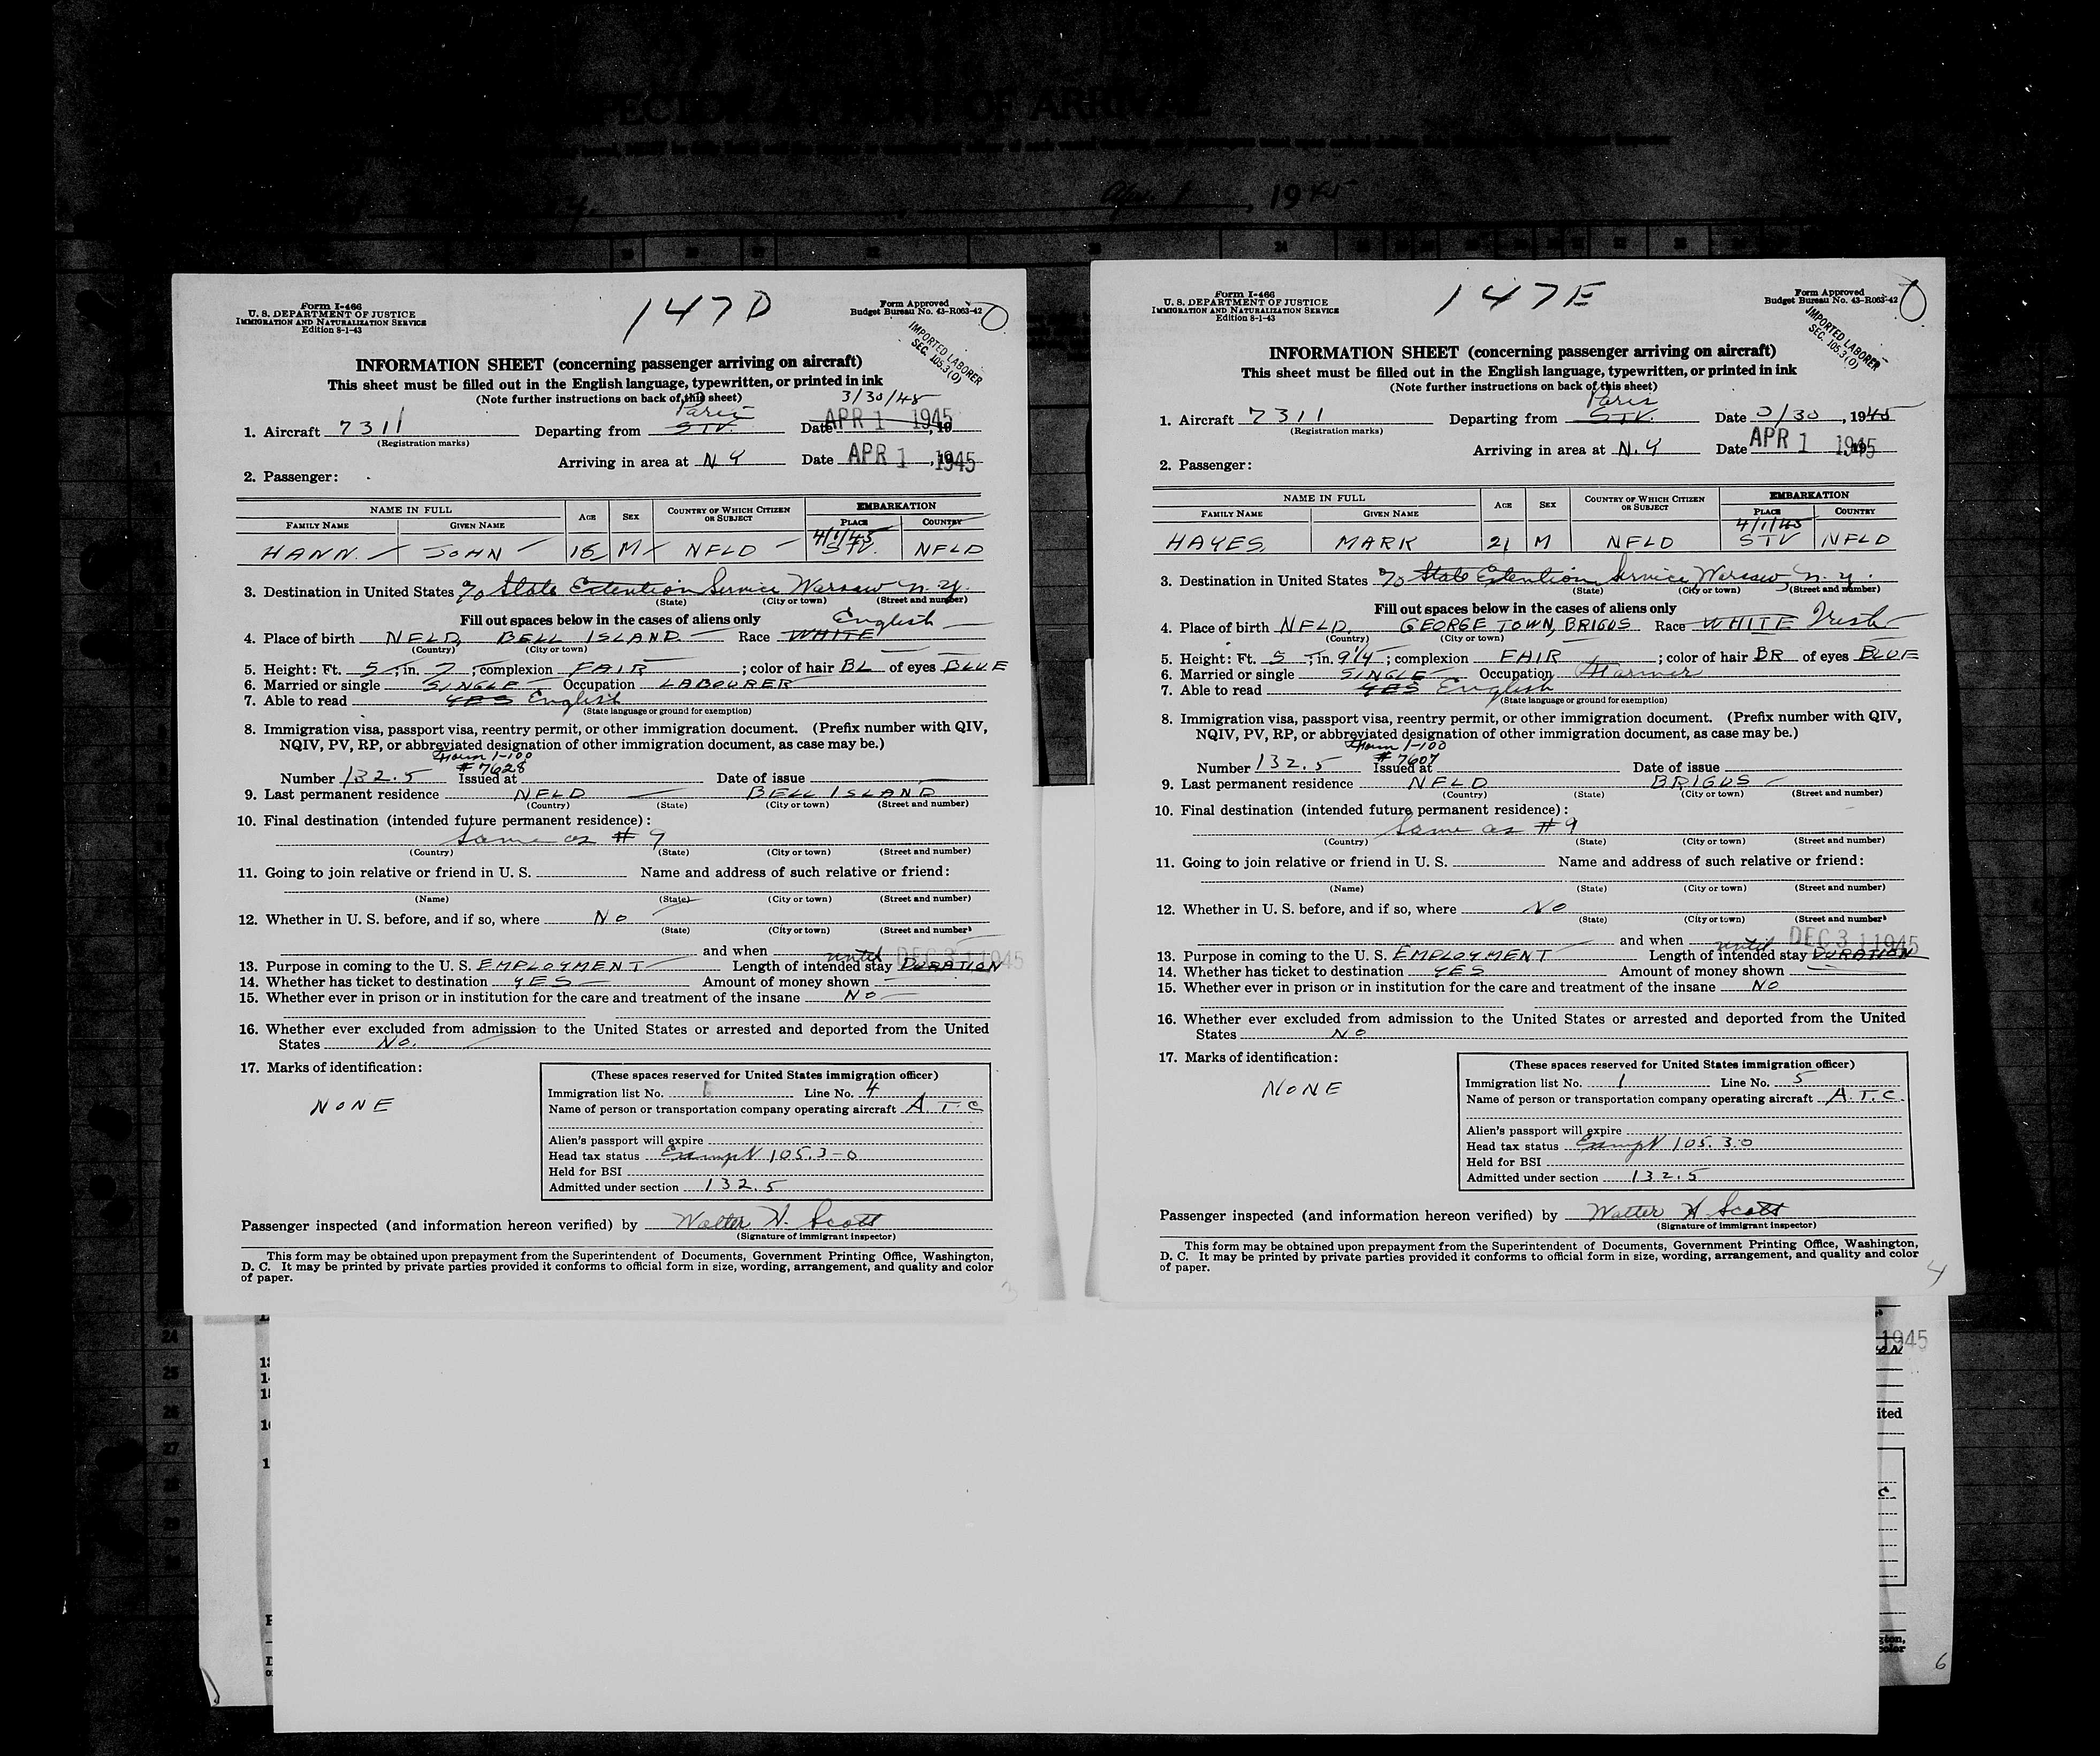 PECTOR AT PORT OF ARRIVAL
Apr. 1, 1945
Form I-466
U. S. DEPARTMENT OF JUSTICE
IMMIGRATION AND NATURALIZATION SERVICE
Edition 8-1-43
147D
Form Approved
Budget Bureau No. 43-R063-42
IMPORTED LABORER
SEC. 105.3(O)
INFORMATION SHEET (concerning passenger arriving on aircraft)
This sheet must be filled out in the English language, typewritten, or printed in ink
(Note further instructions on back of this sheet)
Paris 3/30/45
1. Aircraft 7311 Departing from STV. Date APR 1 1945, 19
(Registration marks)
Arriving in area at N Y Date APR 1 1945, 19
2. Passenger:
NAME IN FULL AGE SEX COUNTRY OF WHICH CITIZEN OR SUBJECT EMBARKATION
FAMILY NAME GIVEN NAME PLACE COUNTRY
4/1/45
HANN. JOHN 18 M NFLD STV. NFLD
3. Destination in United States % State Extention Service Warsaw N.Y.
(State) (City or town) (Street and number)
Fill out spaces below in the cases of aliens only English
4. Place of birth NFLD, BELL ISLAND Race WHITE
(Country) (City or town)
5. Height: Ft. 5, in. 7; complexion FAIR; color of hair BL of eyes BLUE
6. Married or single SINGLE Occupation LABOURER
7. Able to read YES English
(State language or ground for exemption)
8. Immigration visa, passport visa, reentry permit, or other immigration document. (Prefix number with QIV,
NQIV, PV, RP, or abbreviated designation of other immigration document, as case may be.)
Form 1-100
# 7628
Number 132.5 Issued at Date of issue
9. Last permanent residence NFLD BELL ISLAND
(Country) (State) (City or town) (Street and number)
10. Final destination (intended future permanent residence):
Same as # 9
(Country) (State) (City or town) (Street and number)
11. Going to join relative or friend in U. S. Name and address of such relative or friend:
(Name) (State) (City or town) (Street and number)
12. Whether in U. S. before, and if so, where No
(State) (City or town) (Street and number)
and when until DEC 31 1945
13. Purpose in coming to the U. S. EMPLOYMENT Length of intended stay DURATION
14. Whether has ticket to destination YES Amount of money shown
15. Whether ever in prison or in institution for the care and treatment of the insane No
16. Whether ever excluded from admission to the United States or arrested and deported from the United
States No.
17. Marks of identification:
NONE
(These spaces reserved for United States immigration officer)
Immigration list No. 1 Line No. 4
Name of person or transportation company operating aircraft A.T.C
Alien's passport will expire
Head tax status Exempt 105.3-0
Held for BSI
Admitted under section 132.5
Passenger inspected (and information hereon verified) by Walter H. Scott
(Signature of immigrant inspector)
This form may be obtained upon prepayment from the Superintendent of Documents, Government Printing Office, Washington,
D. C. It may be printed by private parties provided it conforms to official form in size, wording, arrangement, and quality and color
of paper.
3
Form I-466
U. S. DEPARTMENT OF JUSTICE
IMMIGRATION AND NATURALIZATION SERVICE
Edition 8-1-43
147E
Form Approved
Budget Bureau No. 43-R063-42
IMPORTED LABORER
SEC. 105.3(O)
INFORMATION SHEET (concerning passenger arriving on aircraft)
This sheet must be filled out in the English language, typewritten, or printed in ink
(Note further instructions on back of this sheet)
Paris
1. Aircraft 7311 Departing from STV. Date 3/30, 1945
(Registration marks)
Arriving in area at N.Y Date APR 1 1945, 19
2. Passenger:
NAME IN FULL AGE SEX COUNTRY OF WHICH CITIZEN OR SUBJECT EMBARKATION
FAMILY NAME GIVEN NAME PLACE COUNTRY
4/1/45
HAYES, MARK 21 M NFLD STV NFLD
3. Destination in United States % State Extention Service Warsaw, N.Y.
(State) (City or town) (Street and number)
Fill out spaces below in the cases of aliens only
4. Place of birth NFLD, GEORGE TOWN, BRIGUS Race WHITE Irish
(Country) (City or town)
5. Height: Ft. 5, in. 9 1/4; complexion FAIR; color of hair BR of eyes BLUE
6. Married or single SINGLE Occupation Farmer
7. Able to read YES English
(State language or ground for exemption)
8. Immigration visa, passport visa, reentry permit, or other immigration document. (Prefix number with QIV,
NQIV, PV, RP, or abbreviated designation of other immigration document, as case may be.)
Form 1-100
# 7607
Number 132.5 Issued at Date of issue
9. Last permanent residence NFLD BRIGUS
(Country) (State) (City or town) (Street and number)
10. Final destination (intended future permanent residence):
Same as # 9
(Country) (State) (City or town) (Street and number)
11. Going to join relative or friend in U. S. Name and address of such relative or friend:
(Name) (State) (City or town) (Street and number)
12. Whether in U. S. before, and if so, where No
(State) (City or town) (Street and number)
and when until DEC 31 1945
13. Purpose in coming to the U. S. EMPLOYMENT Length of intended stay DURATION
14. Whether has ticket to destination YES Amount of money shown
15. Whether ever in prison or in institution for the care and treatment of the insane NO
16. Whether ever excluded from admission to the United States or arrested and deported from the United
States NO
17. Marks of identification:
NONE
(These spaces reserved for United States immigration officer)
Immigration list No. 1 Line No. 5
Name of person or transportation company operating aircraft A.T.C.
Alien's passport will expire
Head tax status Exempt 105.3.0
Held for BSI
Admitted under section 132.5
Passenger inspected (and information hereon verified) by Walter H Scott
(Signature of immigrant inspector)
This form may be obtained upon prepayment from the Superintendent of Documents, Government Printing Office, Washington,
D. C. It may be printed by private parties provided it conforms to official form in size, wording, arrangement, and quality and color
of paper.
4
1945
ited
6